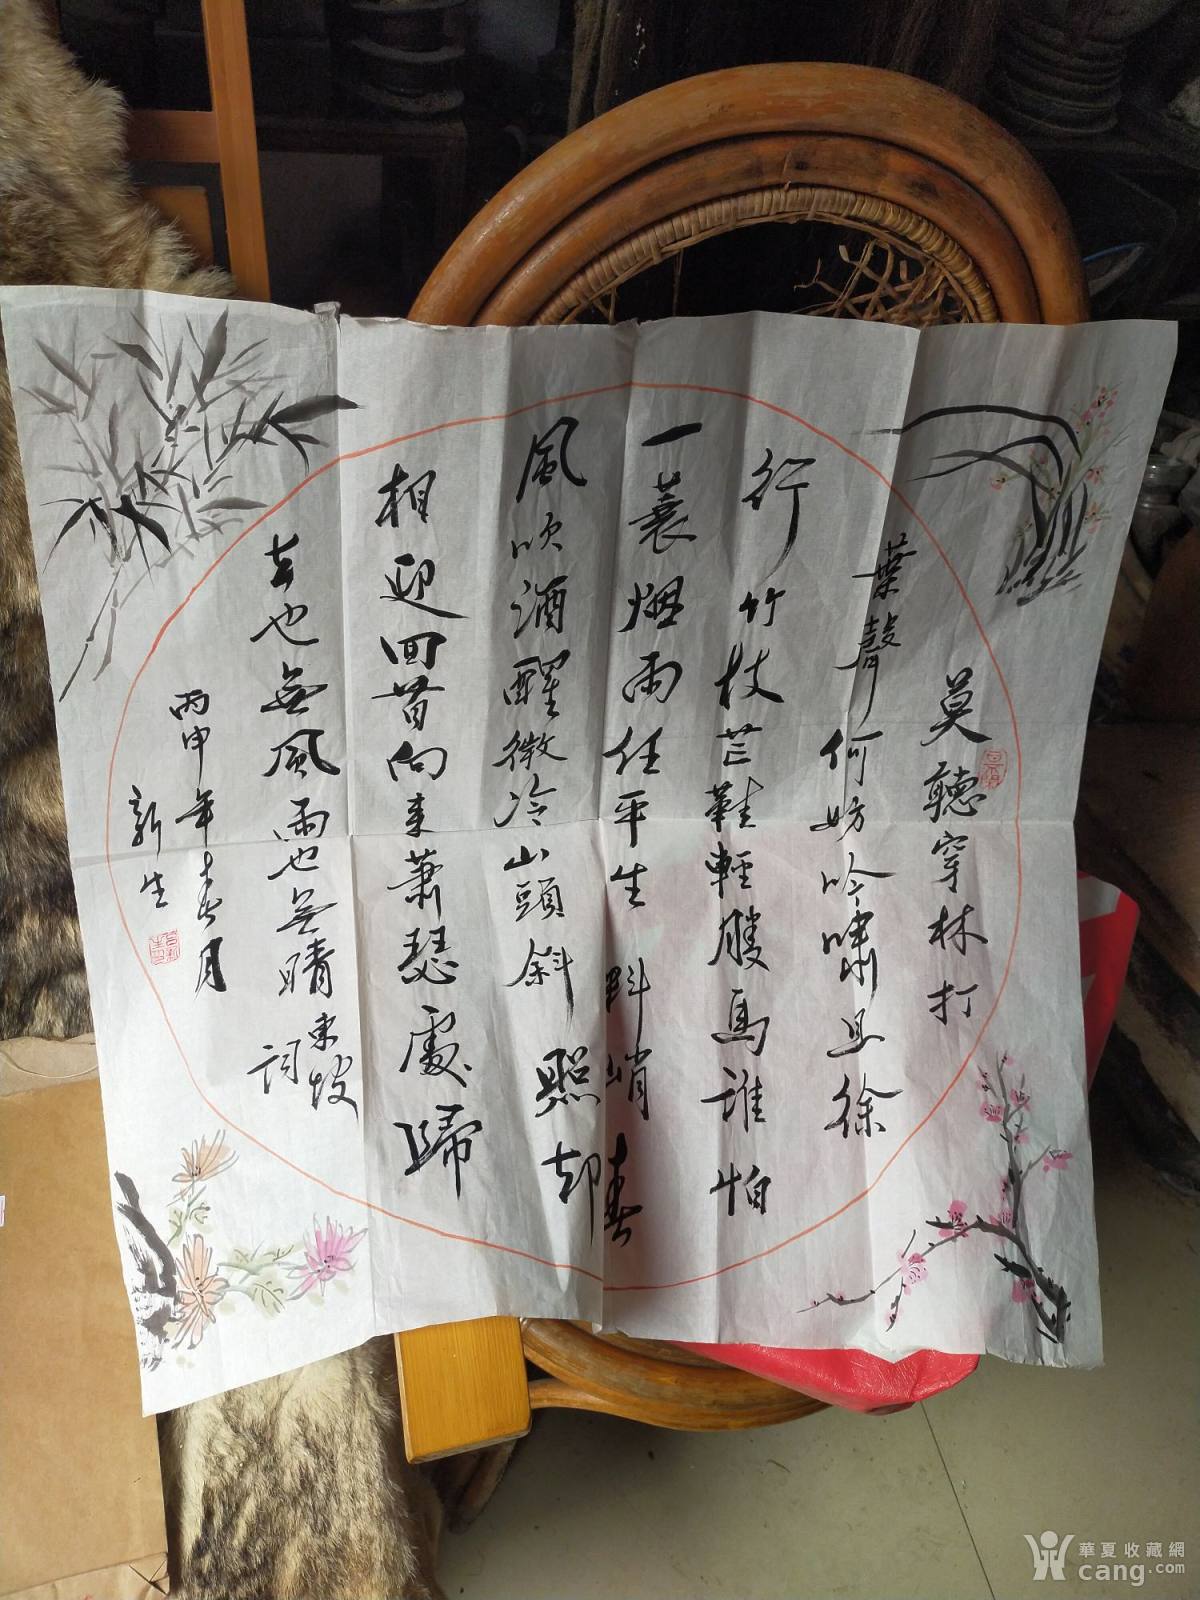 莫聽穿林打
葉聲何妨吟嘯且徐
行竹枝芒鞋輕勝馬誰怕
一蓑烟雨任平生料峭春
風吹酒醒微冷山頭斜照却
相迎回首向来蕭瑟處歸
去也無風雨也無晴東坡
詞
丙申年春月
新生
華夏收藏網
cang.com